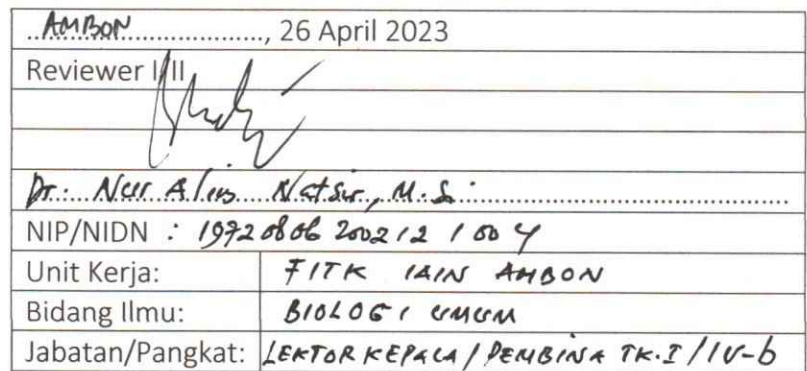 AMBON, 26 April 2023
Reviewer I/II
Dr. Nur Alim Natsir, M.Si
NIP/NIDN : 19720806 200212 1 004
Unit Kerja: FITK IAIN AMBON
Bidang Ilmu: BIOLOGI UMUM
Jabatan/Pangkat: LEKTOR KEPALA / PEMBINA TK.I / IV-b